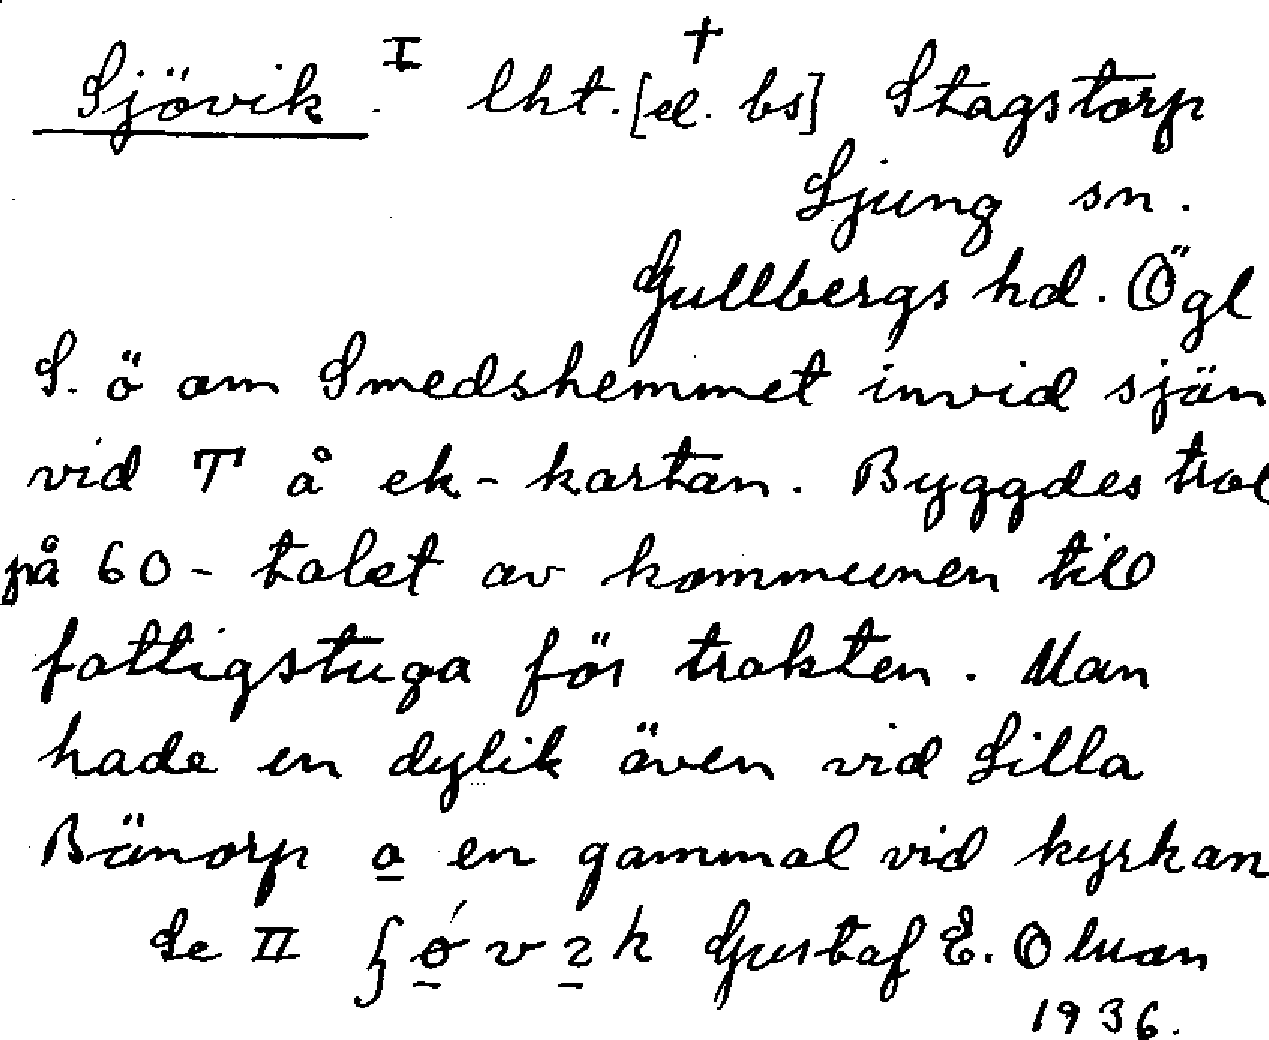 Sjövik. I lht. [el. bs] † Stagstorp
Ljung sn.
Gullbergs hd. Ögl
S. ö om Smedshemmet invid sjön
vid T å ek-kartan. Byggdes trol
på 60-talet av kommunen till
fattigstuga för trakten. Man
hade en dylik även vid Lilla
Bänorp o en gammal vid kyrkan
Se II Gustaf E. Olsson
1936.